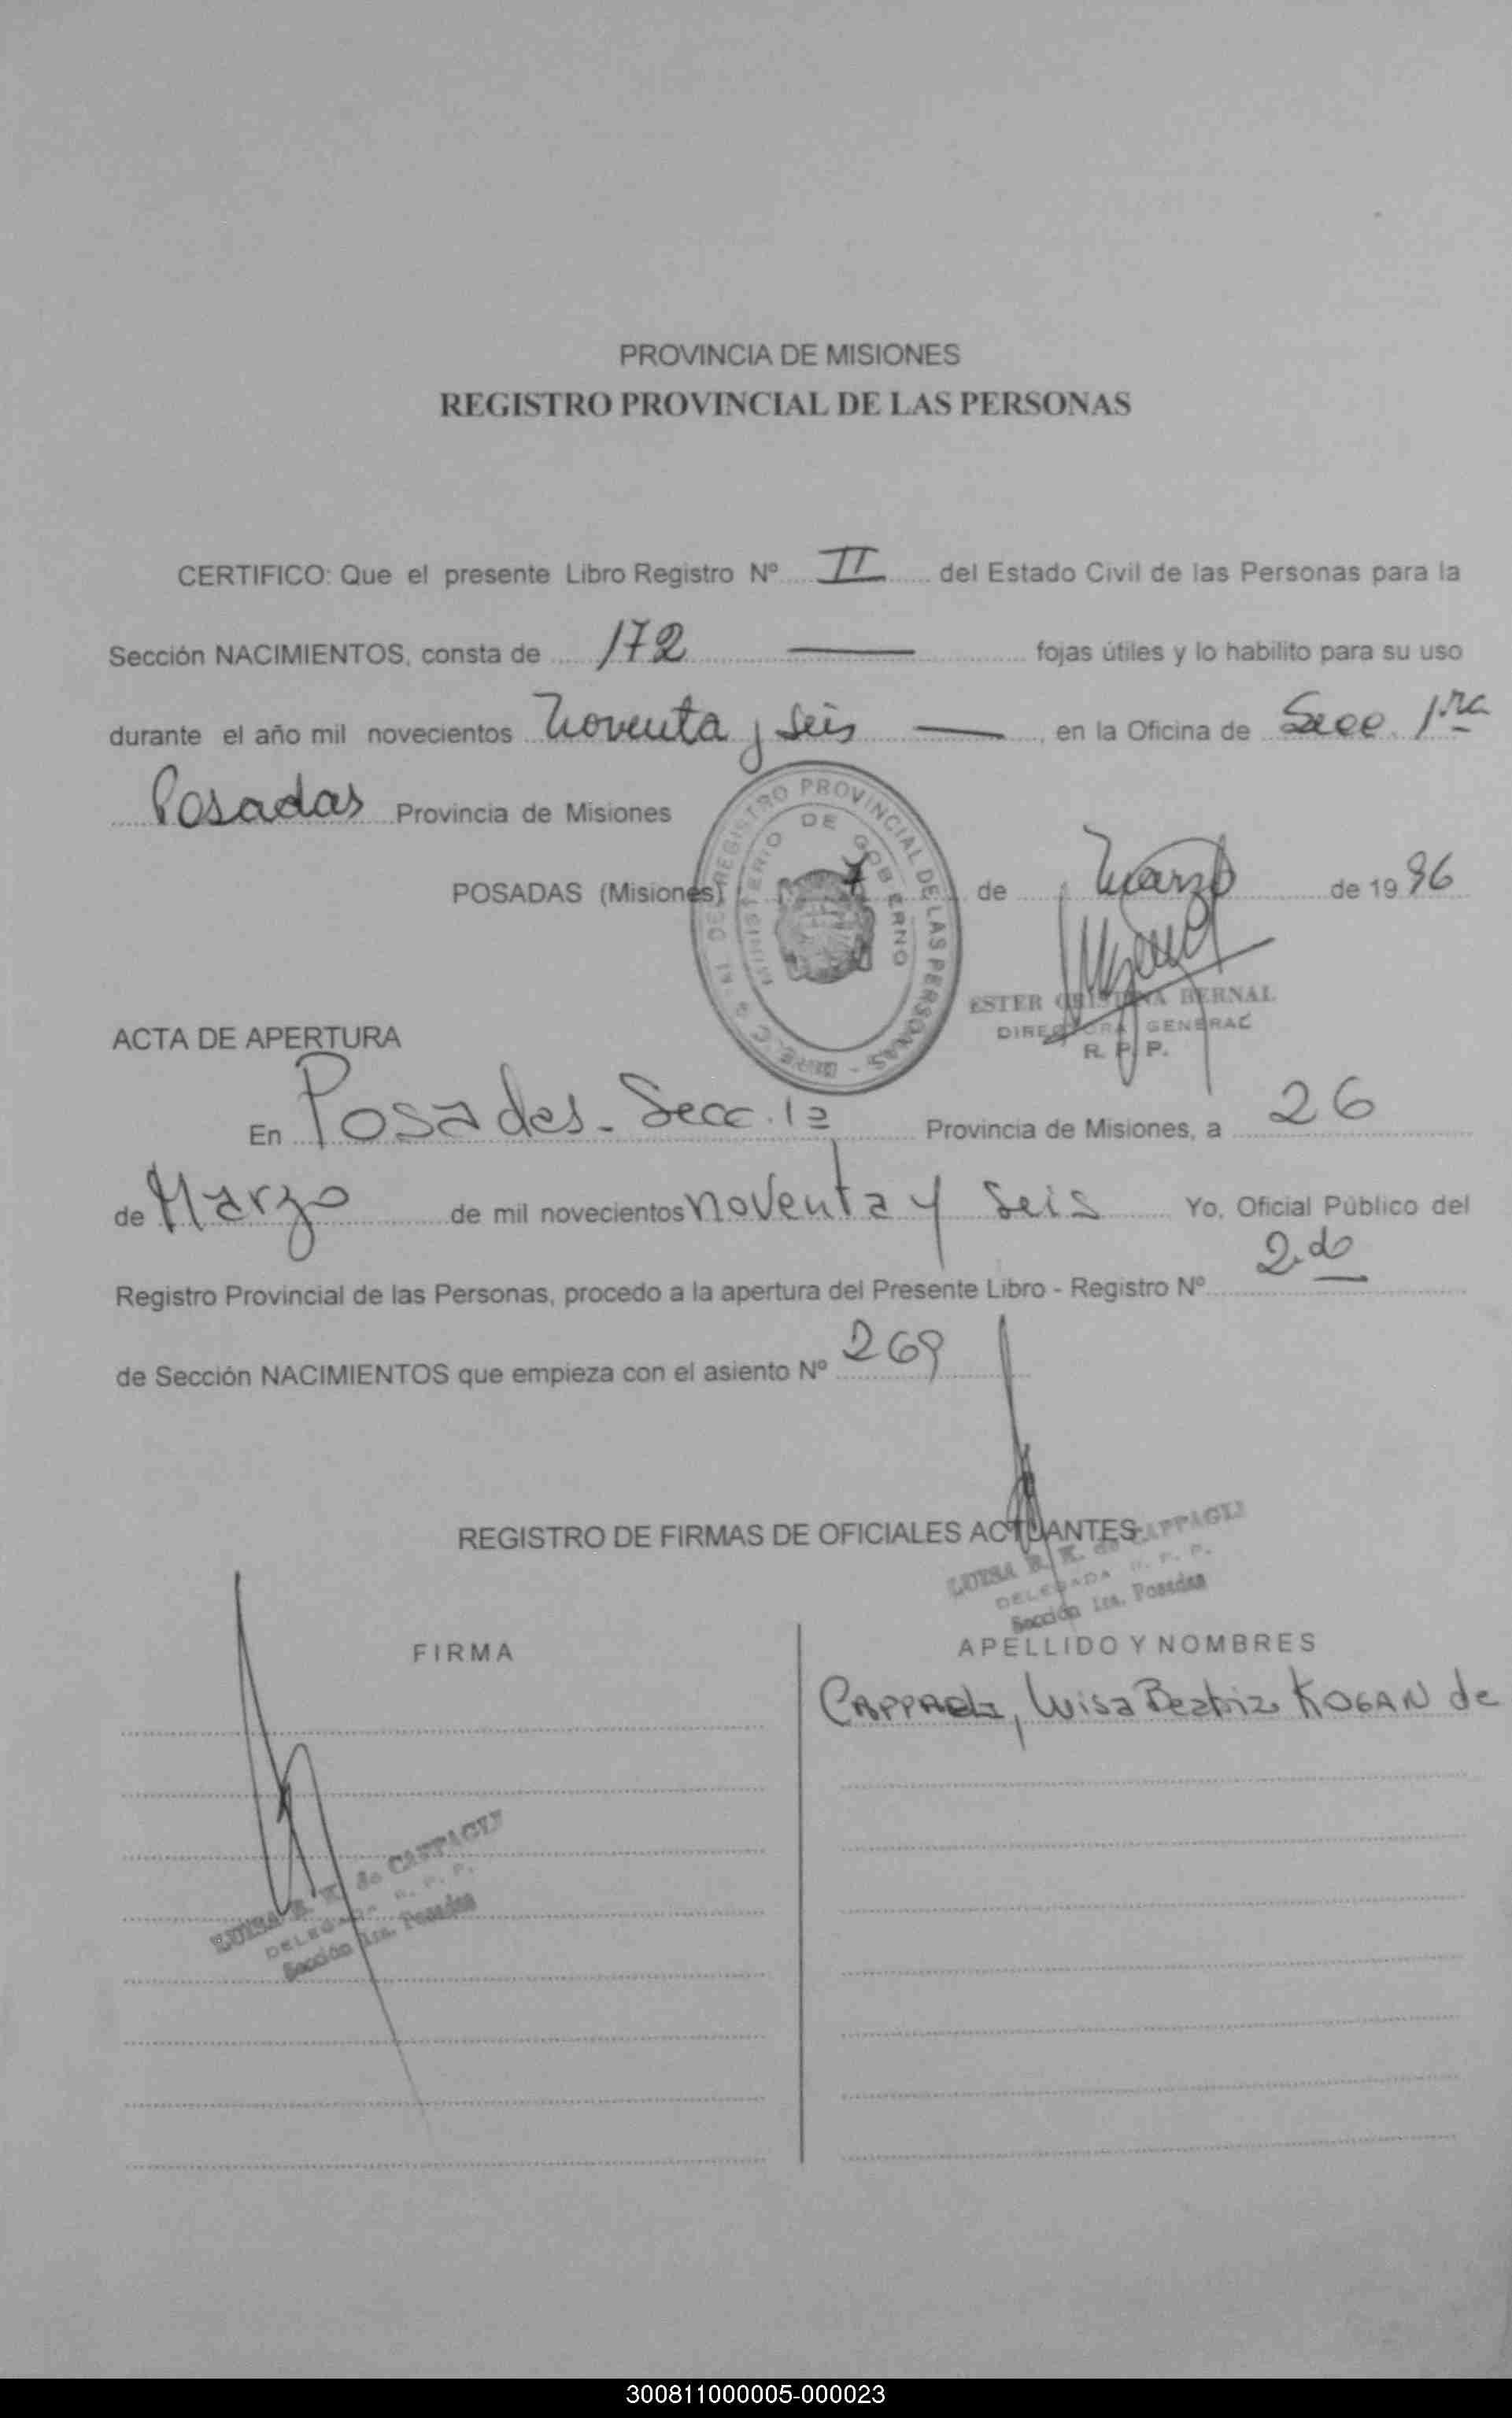 PROVINCIA DE MISIONES
REGISTRO PROVINCIAL DE LAS PERSONAS
CERTIFICO: Que el presente Libro Registro Nº II del Estado Civil de las Personas para la
Sección NACIMIENTOS, consta de 172 fojas útiles y lo habilito para su uso
durante el año mil novecientos noventa y seis, en la Oficina de Secc. 1ra
Posadas Provincia de Misiones
POSADAS (Misiones) 7 de Marzo de 1996
REGISTRO PROVINCIAL DE LAS PERSONAS
MINISTERIO DE GOBIERNO
ESTER CRISTINA BERNAL
DIRECTORA GENERAL
R. P. P.
ACTA DE APERTURA
En Posadas - Secc. 1a Provincia de Misiones, a 26
de Marzo de mil novecientos noventa y seis Yo, Oficial Público del
Registro Provincial de las Personas, procedo a la apertura del Presente Libro - Registro Nº 2.do
de Sección NACIMIENTOS que empieza con el asiento Nº 269
REGISTRO DE FIRMAS DE OFICIALES ACTUANTES
LUISA B. K. de
DELEGADA R. P. P.
Sección 1ra. Posadas
FIRMA
APELLIDO Y NOMBRES
Luisa Beatriz KOGAN de
LUISA B. K. de
DELEGADA R. P. P.
Sección 1ra. Posadas
300811000005-000023